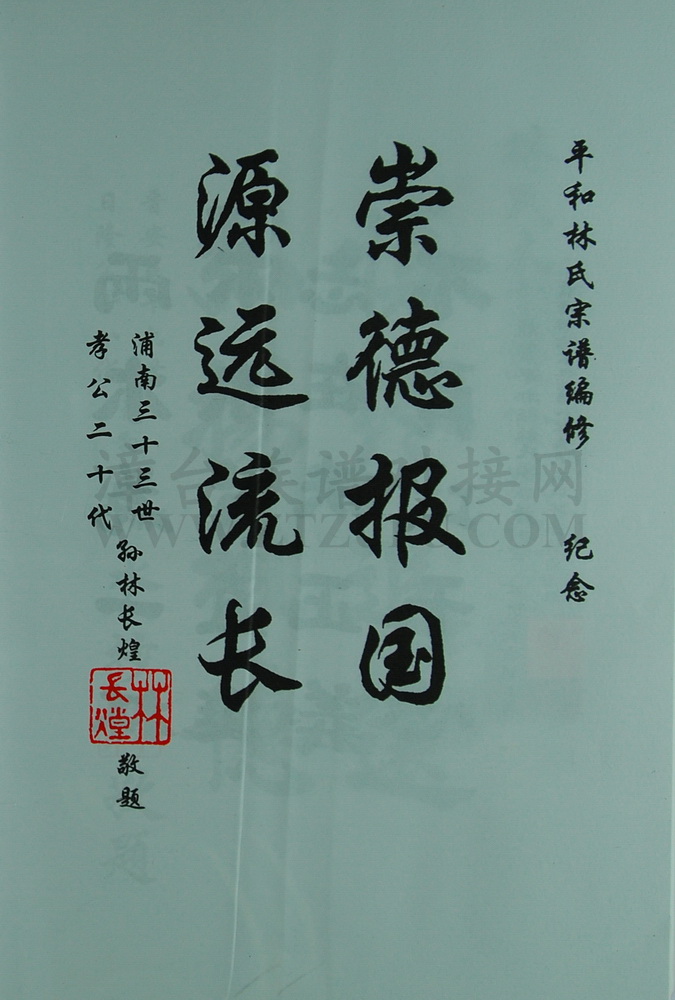 平和林氏宗谱编修 纪念
崇德报国
源远流长
浦南三十三世
孝公二十代
孙林长煌
林长煌
敬题
漳台族谱对接网